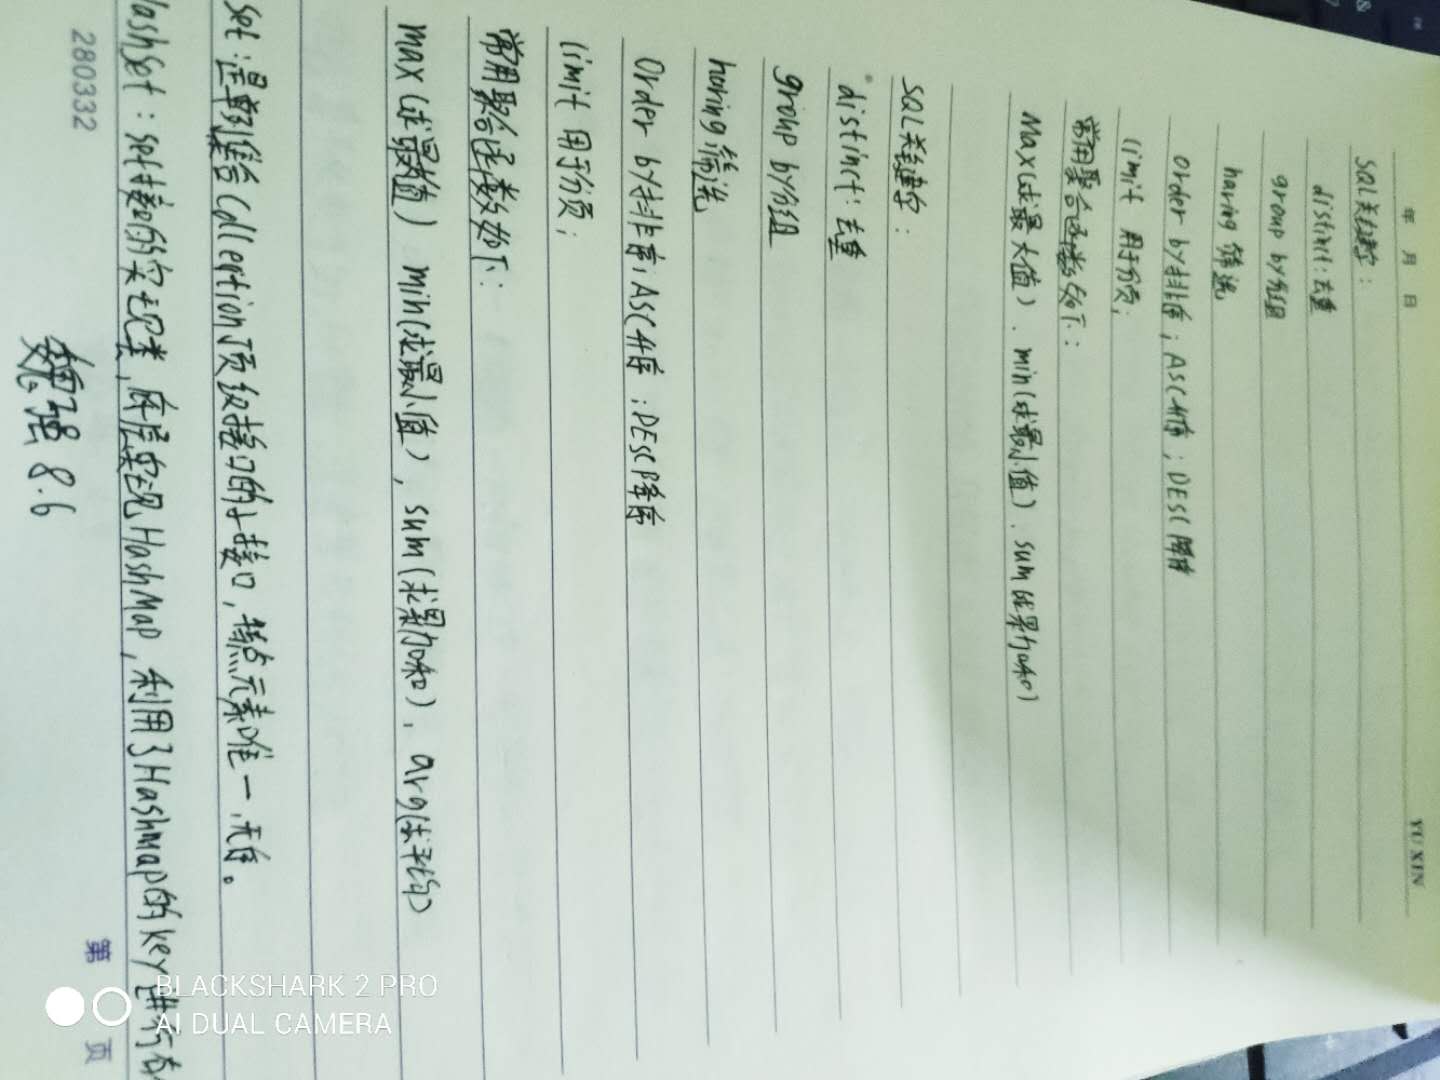 年 月 日
YU XIN
SQL关键字：
distinct：去重
group by分组
having 筛选
order by排序；ASC升序；DESC降序
limit 用于分页；
常用聚合函数如下：
Max（求最大值）、min（求最小值）、sum（求累加和）
SQL关键字：
distinct：去重
group by分组
having筛选
Order by排序；ASC升序；DESC降序
limit 用于分页；
常用聚合函数如下：
max（求最大值） min（求最小值），sum（求累加和）、avg（求平均）
Set：是单列集合Collection顶级接口的子接口，特点元素唯一，无序。
HashSet：set接口的实现类，底层实现HashMap，利用了Hashmap的key进行存
280332
第 页
魏强 8.6
BLACKSHARK 2 PRO
AI DUAL CAMERA